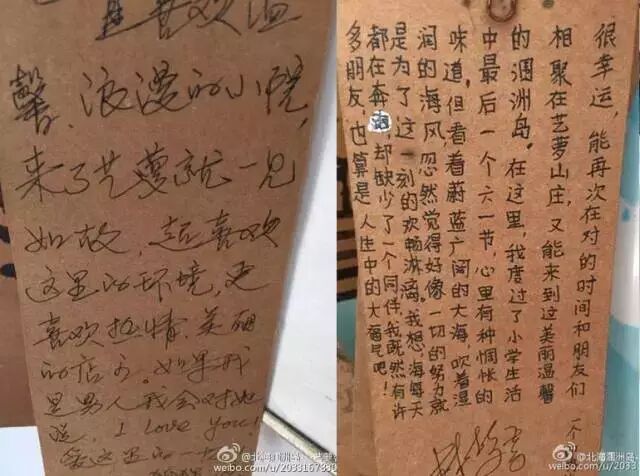 直喜欢温
馨、浪漫的小院,
来了艺萝就一见
如故,超喜欢
这里的环境,更
喜欢热情、美丽
的店主。如果我
是男人我会对她
说, I Love You!
爱这里的一
@北海涠洲岛
weibo.com/u/2033167
很幸运,能再次在对的时间和朋友们
相聚在艺萝山庄,又能来到过美丽温馨
的涠洲岛。在这里,我度过了小学生活
中最后一个六一节,心里有种惆怅的
味道。但看着蔚蓝广阔的大海,吹着湿
润的海风,忽然觉得好像一切的努力就
是为了这一刻的欢畅淋漓。我想,海每天
都在奔,却缺少了一个同伴,我既然有许
多朋友,也算是人生中的大福气吧!
一个
@北海涠洲岛
weibo.com/u/2033167